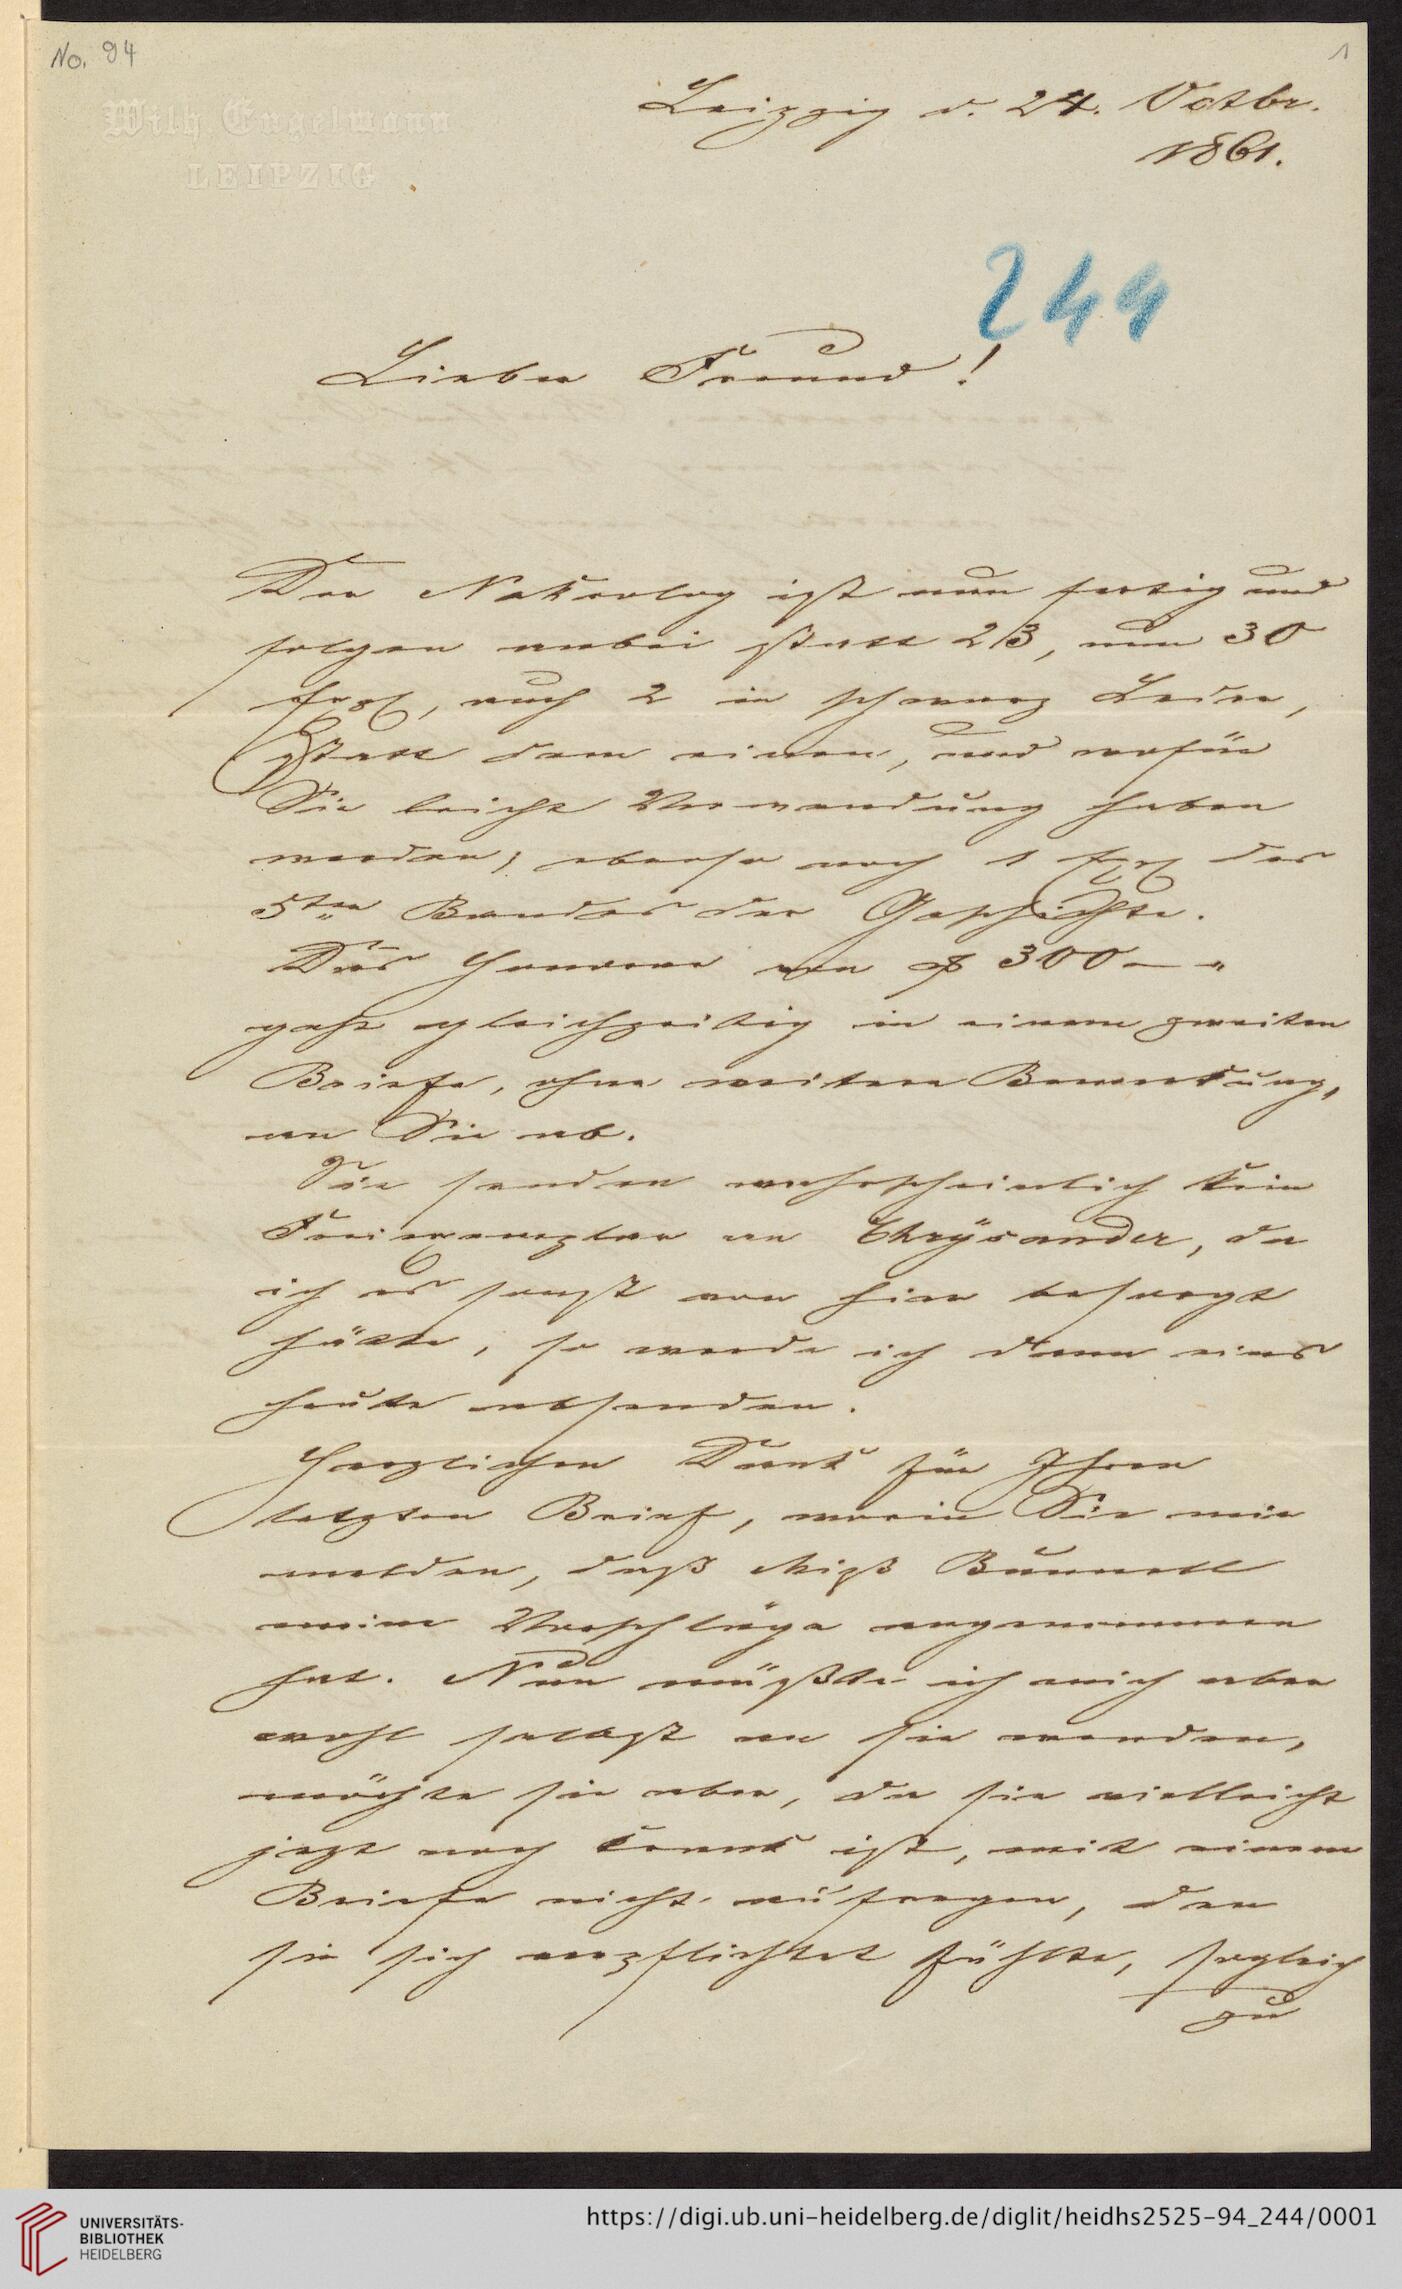 No. 94
1
Wilh Engelmann
LEIPZIG
Leipzig d. 24. Octbr.
1861.
244
Lieber Freund!
Der Nekrolog ist nun fertig und
folgen anbei statt 23, nun 30
Expl, auch 2 in schwarz Leder,
statt dem einen, und wofür
Sie leicht Verwendung haben
werden; ebenso noch 1 Expl des
5ten Bandes der Geschichte.
Das Honorar von 300 — "
geht gleichzeitig in einem zweiten
Briefe, ohne weitere Bemerkung,
an Sie ab.
Sie senden wahrscheinlich kein
Freiexemplar an Chrysander, da
ich es sonst von hier besorgt
hätte, so werde ich denn eines
heute absenden.
Herzlichen Dank für Ihren
letzten Brief, worin Sie mir
melden, daß Miß Bunnett
meine Vorschläge angenommen
hat. Nun müßte ich mich aber
wohl selbst an sie wenden,
möchte sie aber, da sie vielleicht
jezt noch krank ist, mit einem
Briefe nicht aufregen, den
sie sich verpflichtet fühlte, sogleich
zu
UNIVERSITÄTS-
BIBLIOTHEK
HEIDELBERG
https://digi.ub.uni-heidelberg.de/diglit/heidhs2525-94_244/0001